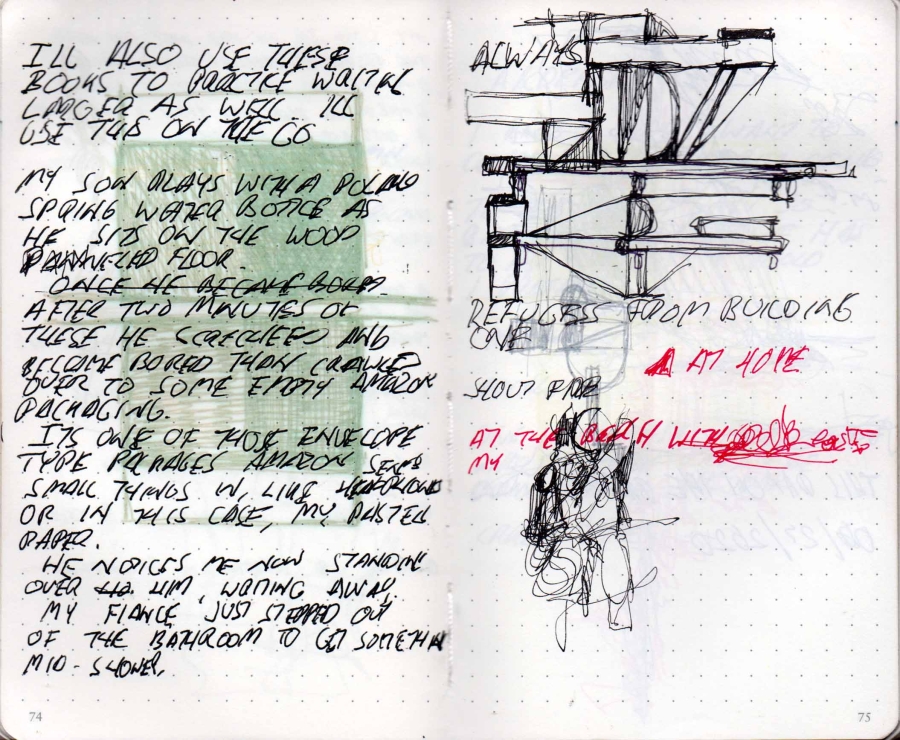 ILL ALSO USE THESE
BOOKS TO PRACTICE WRITING
LARGER AS WELL. ILL
USE THIS ON THE GO
MY SON PLAYS WITH A POLAND
SPRING WATER BOTTLE AS
HE SITS ON THE WOOD
PANNELED FLOOR.
ONCE HE BECAME BORED
AFTER TWO MINUTES OF
THESE HE SCREECHED AND
BECOME BORED THAN CRAWLED
OVER TO SOME EMPTY AMAZON
PACKAGING.
ITS ONE OF THOSE ENVELOPE
TYPE PACKAGES AMAZON SENDS
SMALL THINGS IN, LIKE HEADPHONES
OR IN THIS CASE, MY PASTEL
PAPER.
HE NOTICES ME NOW STANDING
OVER HIM, WRITING AWAY.
MY FIANCE JUST STEPPED OUT
OF THE BATHROOM TO GET SOMETHIN
MID-SHOWER.
74
ALWAYS
REFUGESS FROM BUILDING
ONE
A AT HOME
SHOUT FIRE
AT THE BEACH WITH
MY
75